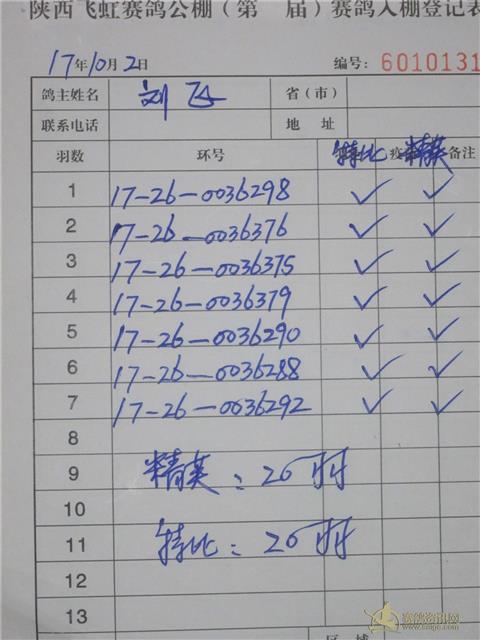 陕西飞虹赛鸽公棚（第 届）赛鸽入棚登记表
17年10月2日 编号：6010131
鸽主姓名 刘飞 省（市）
联系电话 地 址
羽数 环号 特比 精英 备注
1 17-26-0036298 ✓ ✓
2 17-26-0036376 ✓ ✓
3 17-26-0036375 ✓ ✓
4 17-26-0036379 ✓ ✓
5 17-26-0036290 ✓ ✓
6 17-26-0036288 ✓ ✓
7 17-26-0036292 ✓ ✓
8
9 精英：20
10
11 特比：20
12
13
区 域
赛鸽资讯网